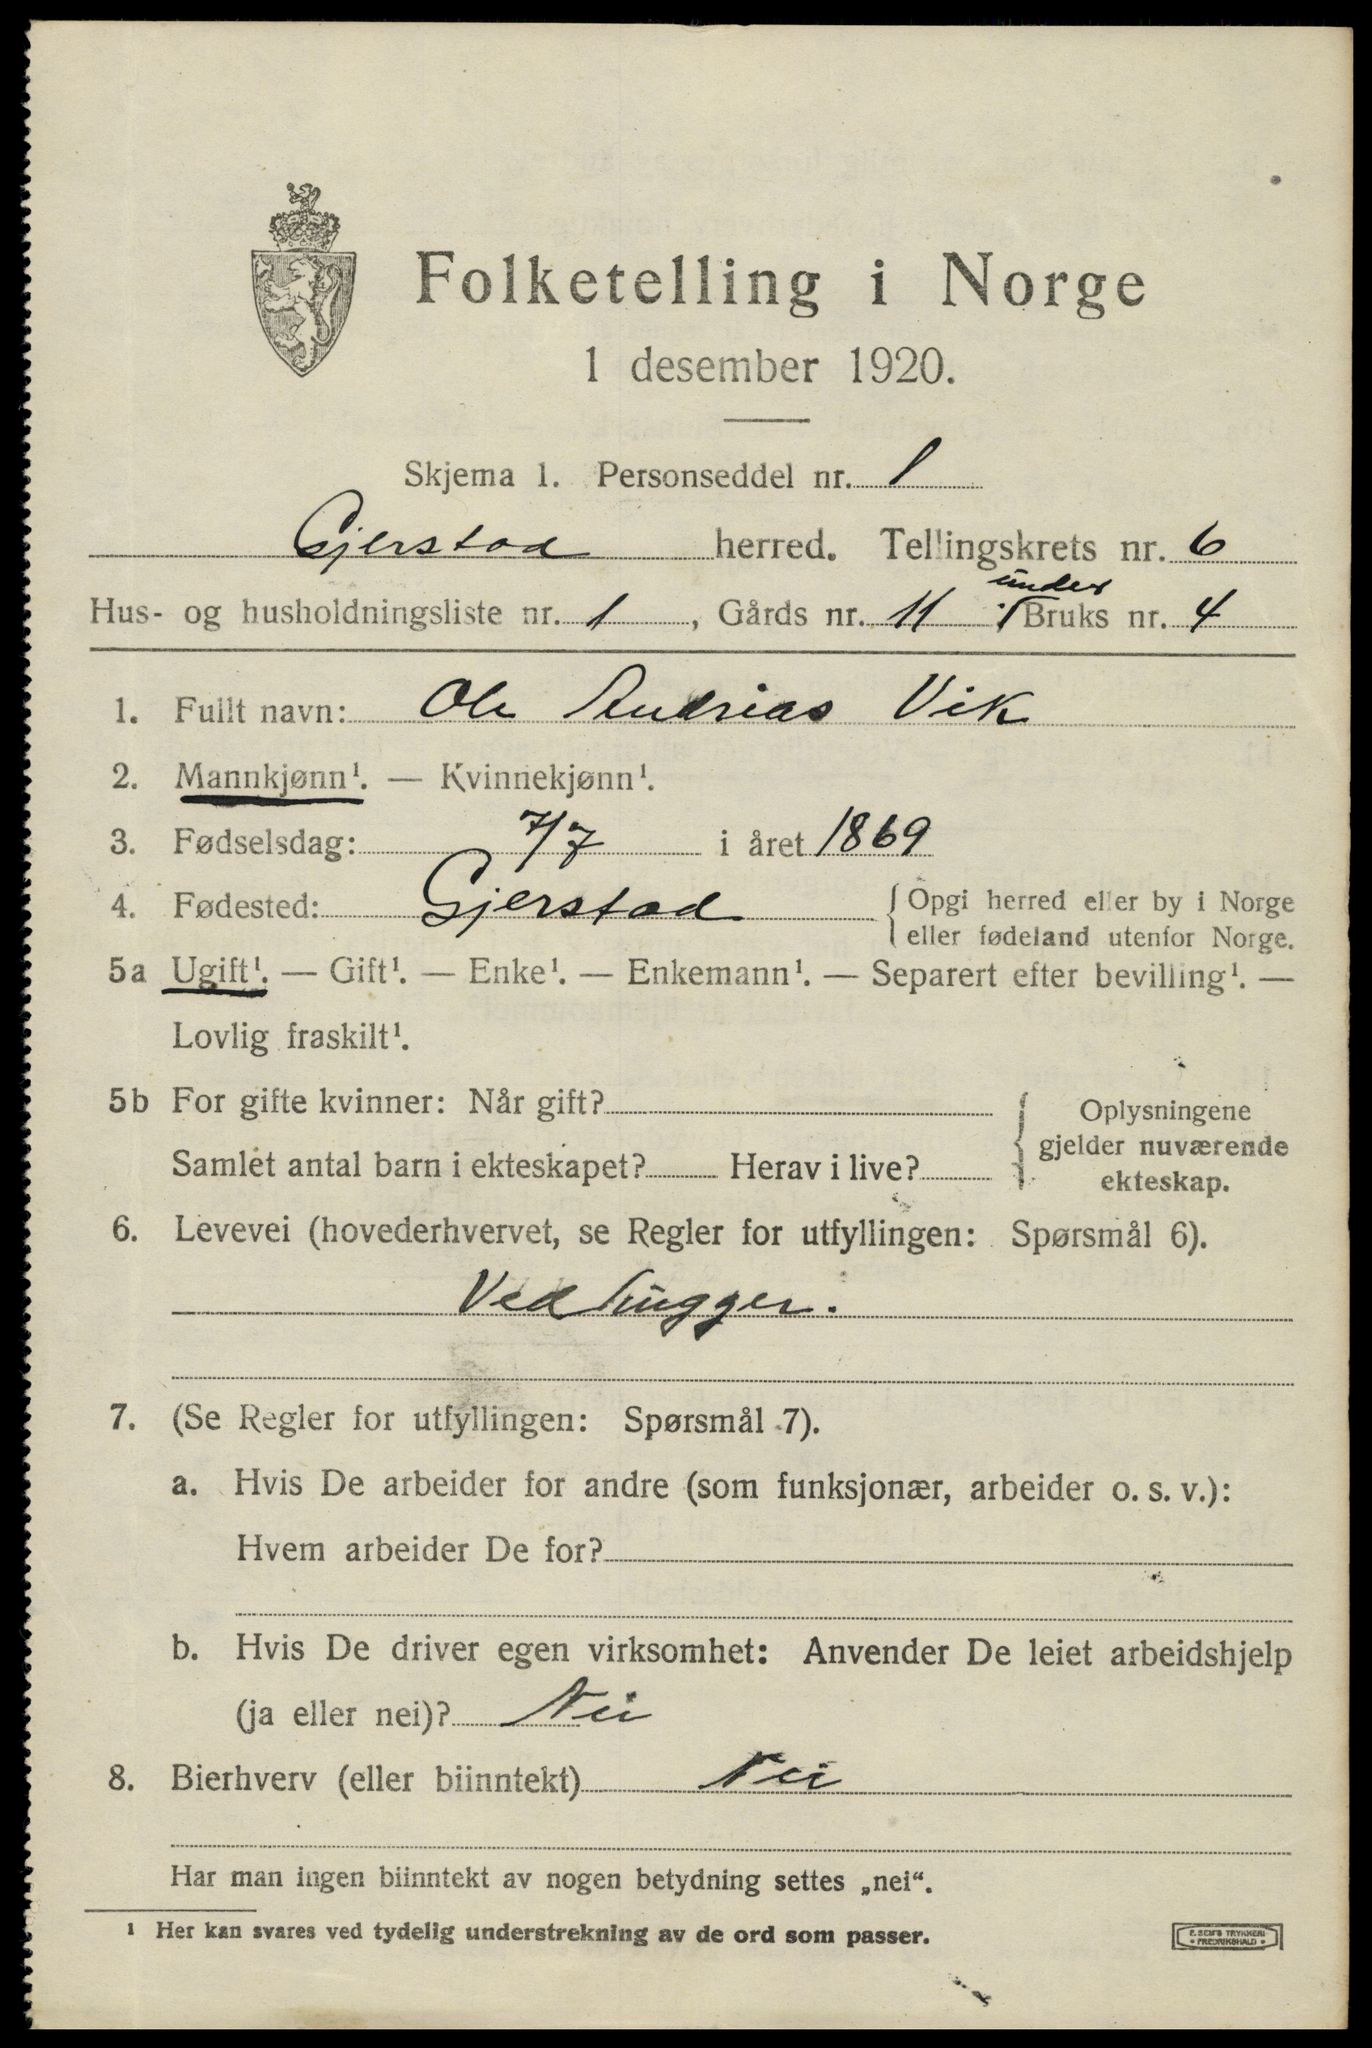 Folketelling i Norge
1 desember 1920.
Skjema 1. Personseddel nr. 1
Gjerstad herred. Tellingskrets nr. 6
under
Hus- og husholdningsliste nr. 1, Gårds nr. 11 Bruks nr. 4
1. Fullt navn: Ole Andrias Vik
2. Mannkjønn¹. — Kvinnekjønn¹.
3. Fødselsdag: 7/7 i året 1869
4. Fødested: Gjerstad { Opgi herred eller by i Norge
eller fødeland utenfor Norge.
5a Ugift¹. — Gift¹. — Enke¹. — Enkemann¹. — Separert efter bevilling¹. —
Lovlig fraskilt¹.
5b For gifte kvinner: Når gift? { Oplysningene
gjelder nuværende
Samlet antal barn i ekteskapet? Herav i live?
ekteskap.
6. Levevei (hovederhvervet, se Regler for utfyllingen: Spørsmål 6).
Vedhugger.
7. (Se Regler for utfyllingen: Spørsmål 7).
a. Hvis De arbeider for andre (som funksjonær, arbeider o. s. v.):
Hvem arbeider De for?
b. Hvis De driver egen virksomhet: Anvender De leiet arbeidshjelp
(ja eller nei)? Nei
8. Bierhverv (eller biinntekt) Nei
Har man ingen biinntekt av nogen betydning settes „nei“.
¹ Her kan svares ved tydelig understrekning av de ord som passer.
F. SEM'S TRYKKERI
• FREDRIKSHALD •